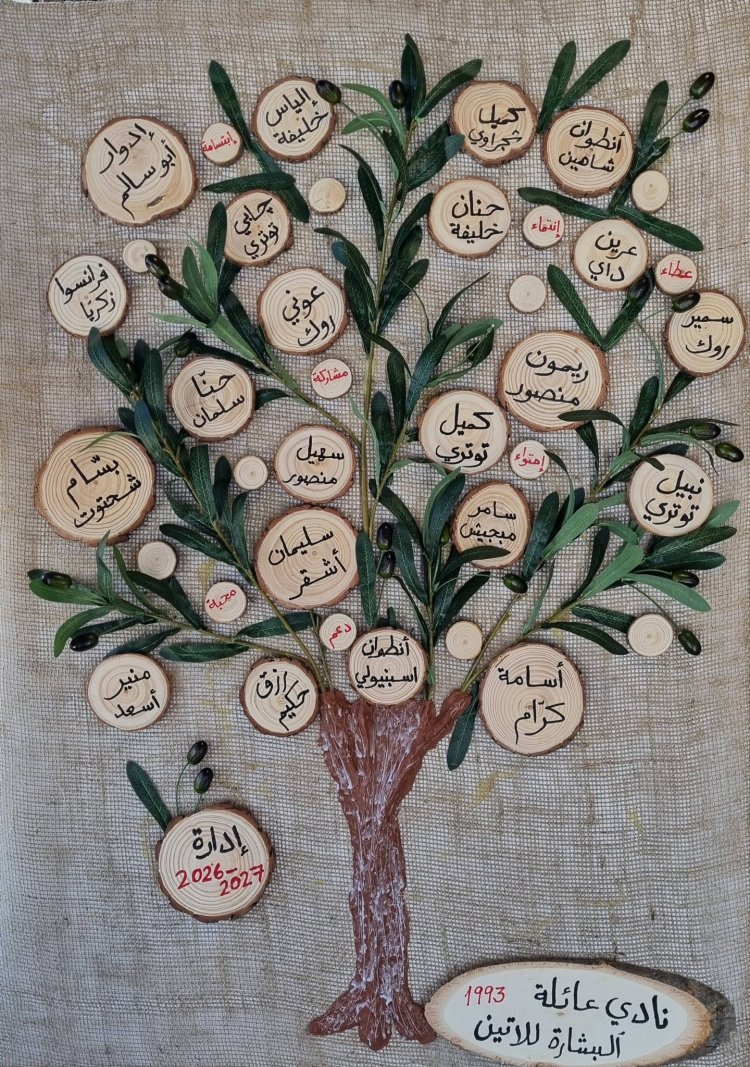 إلياس
خليفة
كميل
شحراوي
إدوار
أبو سالم
إبتسامة
أنطوان
شاهين
جابي
توتري
حنان
خليفة
إنتماء
عرين
داي
عطاء
فرانسوا
زكريا
عوني
روك
سمير
روك
ريمون
منصور
مشاركة
حنّا
سلمان
كميل
توتري
سهيل
منصور
إحتواء
بسّام
شحتوت
نبيل
توتري
سامر
مبجيش
سليمان
أشقر
محبة
دعم
أنطوان
اسبنيولي
منير
أسعد
رازق
حكيم
أسامة
كرّام
إدارة
2026-
2027
نادي عائلة 1993
البشارة للاتين